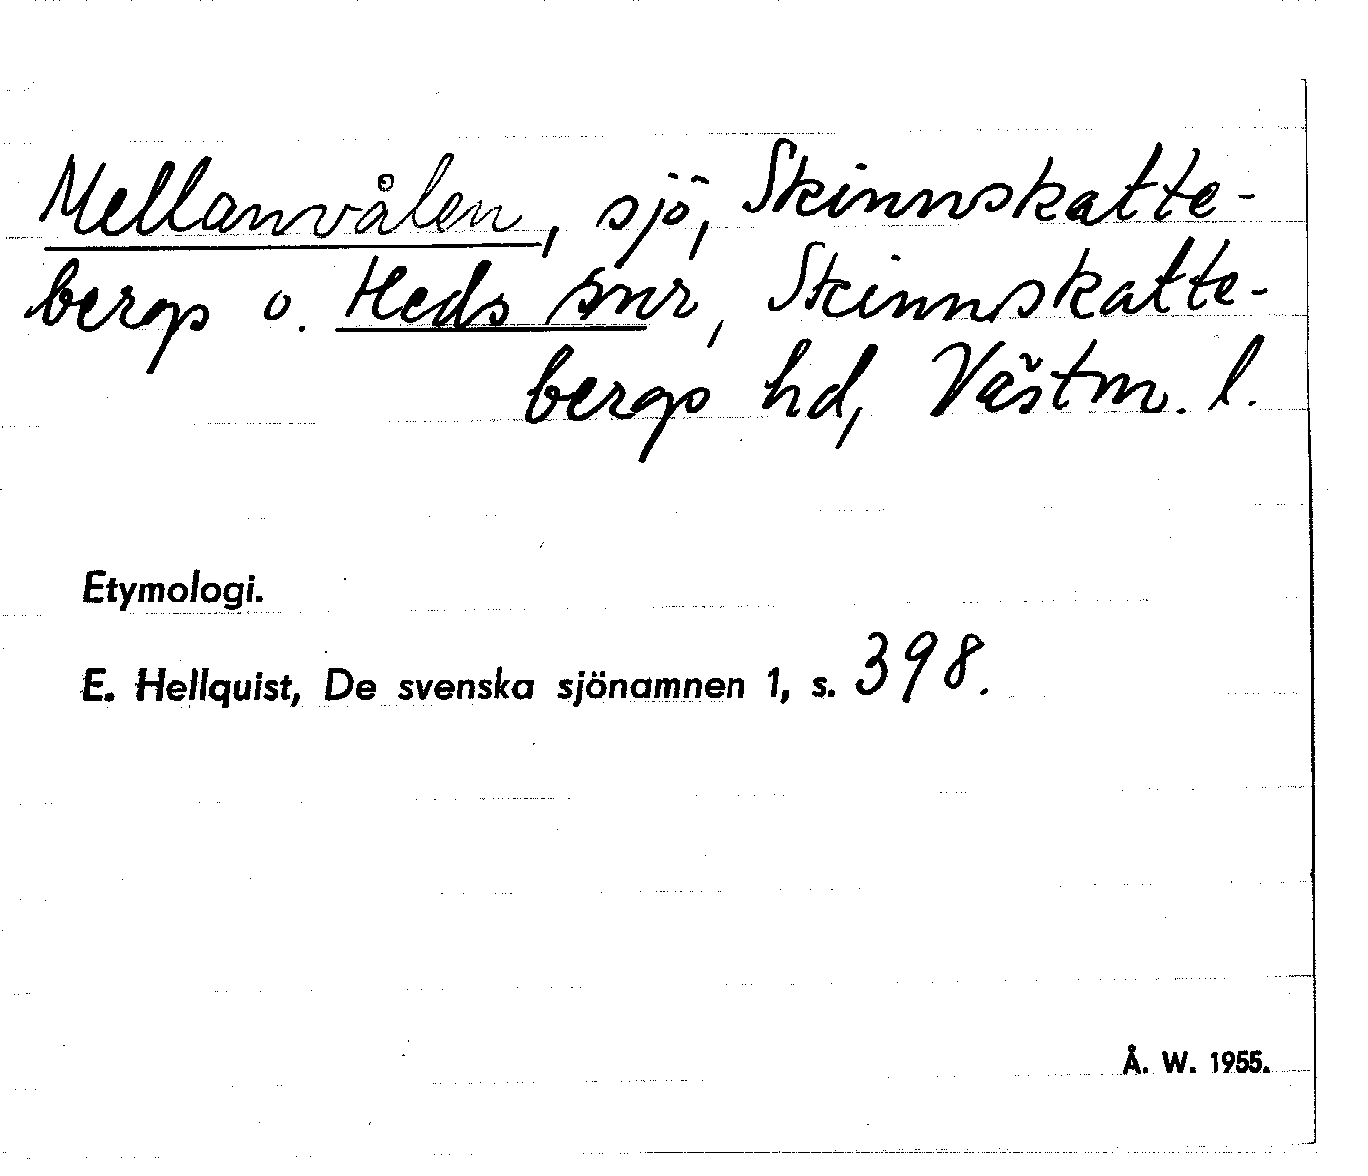 Mellanvålen, sjö, Skinnskatte-
bergs o. Heds snr, Skinnskatte-
bergs hd, Västm. l.
Etymologi.
E. Hellquist, De svenska sjönamnen 1, s. 398.
Å. W. 1955.